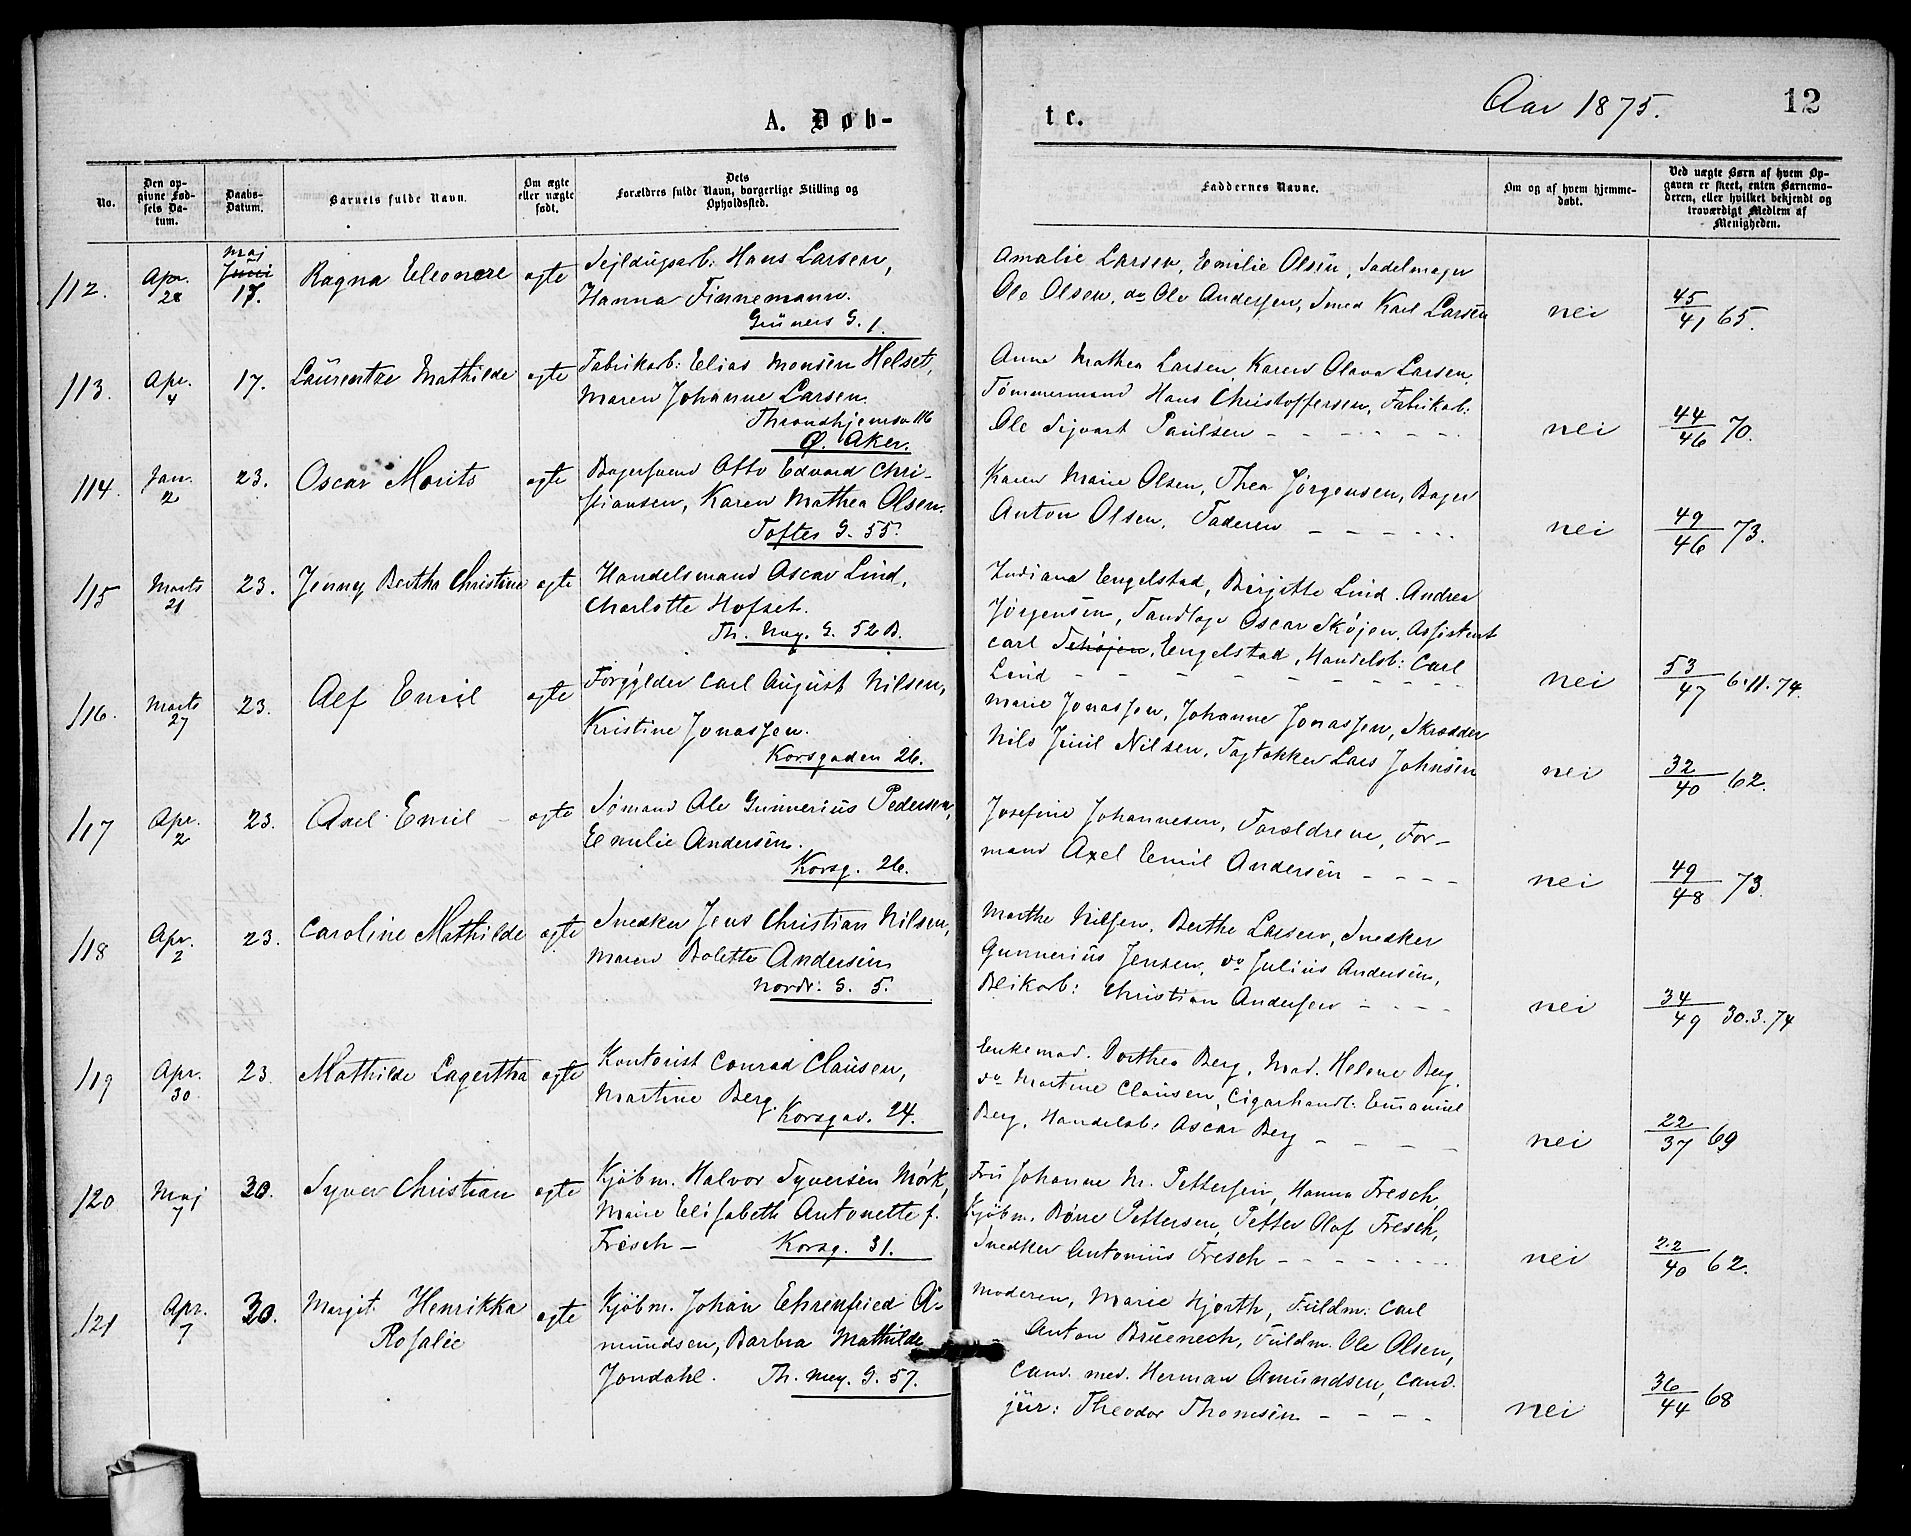 Aar 1875.
12
A. Døb-
te.
No.
Den op-
givne Fød-
sels Da-
tum.
Daabs-
Datum.
Barnets fulde Navn.
Om ægte
eller uægte
født.
Dets
Forældres fulde Navn, borgerlige Stilling og
Opholdssted.
Faddernes Navne.
Om og af hvem hjemme-
døbt.
Ved uægte Børn af hvem Op-
gaven er skeet, enten Barnemo-
deren, eller hvilket bekjendt og
troværdigt Medlem af
Menigheden.
112. Apr. 28 Maj Juni 17. Ragna Eleonore ægte
Sejldugsarb: Hans Larsen,
Hanna Finnemann.
Grüners G. 1.
Amalie Larsen, Emilie Olsen, Sadelmager
Ole Olsen, do Ole Andersen, Smed Karl Larsen
nei 45/41 65.
113. Apr. 4 17. Laurentze Mathilde ægte
Fabrikarb: Elias Monsen Helset,
Maren Johanne Larsen.
Throndhjemsv 116
Ø. Aker.
Anne Mathea Larsen, Karen Olava Larsen,
Tømmermand Hans Christoffersen, Fabrikarb:
Ole Sigvart Paulsen
nei 44/46 70.
114. Jan. 2 23. Oscar Morits ægte
Bagersvend Otto Edvard Chri-
stiansen, Karen Mathea Olsen.
Toftes G. 55.
Karen Marie Olsen, Thea Jørgensen, Bager
Anton Olsen, Faderen
nei 49/46 73.
115 Marts 21 23. Jenny Bertha Christine ægte
Handelsmand Oscar Lind,
Charlotte Hofset.
Th. Mey. G. 52 B.
Indiana Engelstad, Birjitte Lind, Andrea
Jørgensen, Tandlæge Oscar Skøjen, Assistent
Carl Schøjen, Engelstad, Handelsb: Carl
Lind
nei 53/47 6.11.74.
116. Marts 27 23. Alf Emil ægte
Forgylder Carl August Nilsen,
Kristine Jonassen.
Korsgaden 26.
Marie Jonassen, Johanne Jonassen, Skrædder
Nils Juul Nilsen, Tagtækker Lars Johnsen
nei 32/40 62.
117 Apr. 2 23. Axel Emil ægte
Sømand Ole Gunnerius Pedersen,
Emilie Andersen.
Korsg. 26.
Josefine Johannesen, Forældrene, For-
mand Axel Emil Andersen
nei 49/48 73.
118 Apr. 2 23. Caroline Mathilde ægte
Snedker Jens Christian Nilsen,
Maren Bolette Andersen
Nordr: G. 5.
Marthe Nilsen, Berthe Larsen, Snedker
Gunnerius Jensen, do Julius Andersen,
Blikarb: Christian Andersen
nei 34/49 30.3.74
119 Apr. 30 23. Mathilde Lagertha ægte
Kontorist Conrad Clausen,
Martine Berg.
Korsgad. 24.
Enkemad. Dorthea Berg, Mad. Helene Berg,
do Martine Clausen, Cigarhandl: Emanuel
Berg, Handelsb: Oscar Berg
nei 22/37 69
120 Maj 7 30. Syver Christian ægte
Kjøbm. Halvor Syversen Mørk,
Marie Elisabeth Antonette f.
Fresch - Korsg. 31.
Fru Johanne M. Pettersen, Hanna Fresch,
Kjøbm. Børre Pettersen, Petter Olof Fresch,
Snedker Antonius Fresch
nei 22/40 62.
121 Apr. 7 30. Margit Henrikka
Rosalie ægte
Kjøbm. Johan Ehrenfried A-
mundsen, Barbra Mathilde
Jondahl. Th. Mey. G. 57.
Moderen, Marie Hjorth, Fuldm: Carl
Anton Bruenech, Fuldm. Ole Olsen,
Cand. med. Herman Amundsen, Cand.
jur: Theodor Thomsen
nei 36/44 68